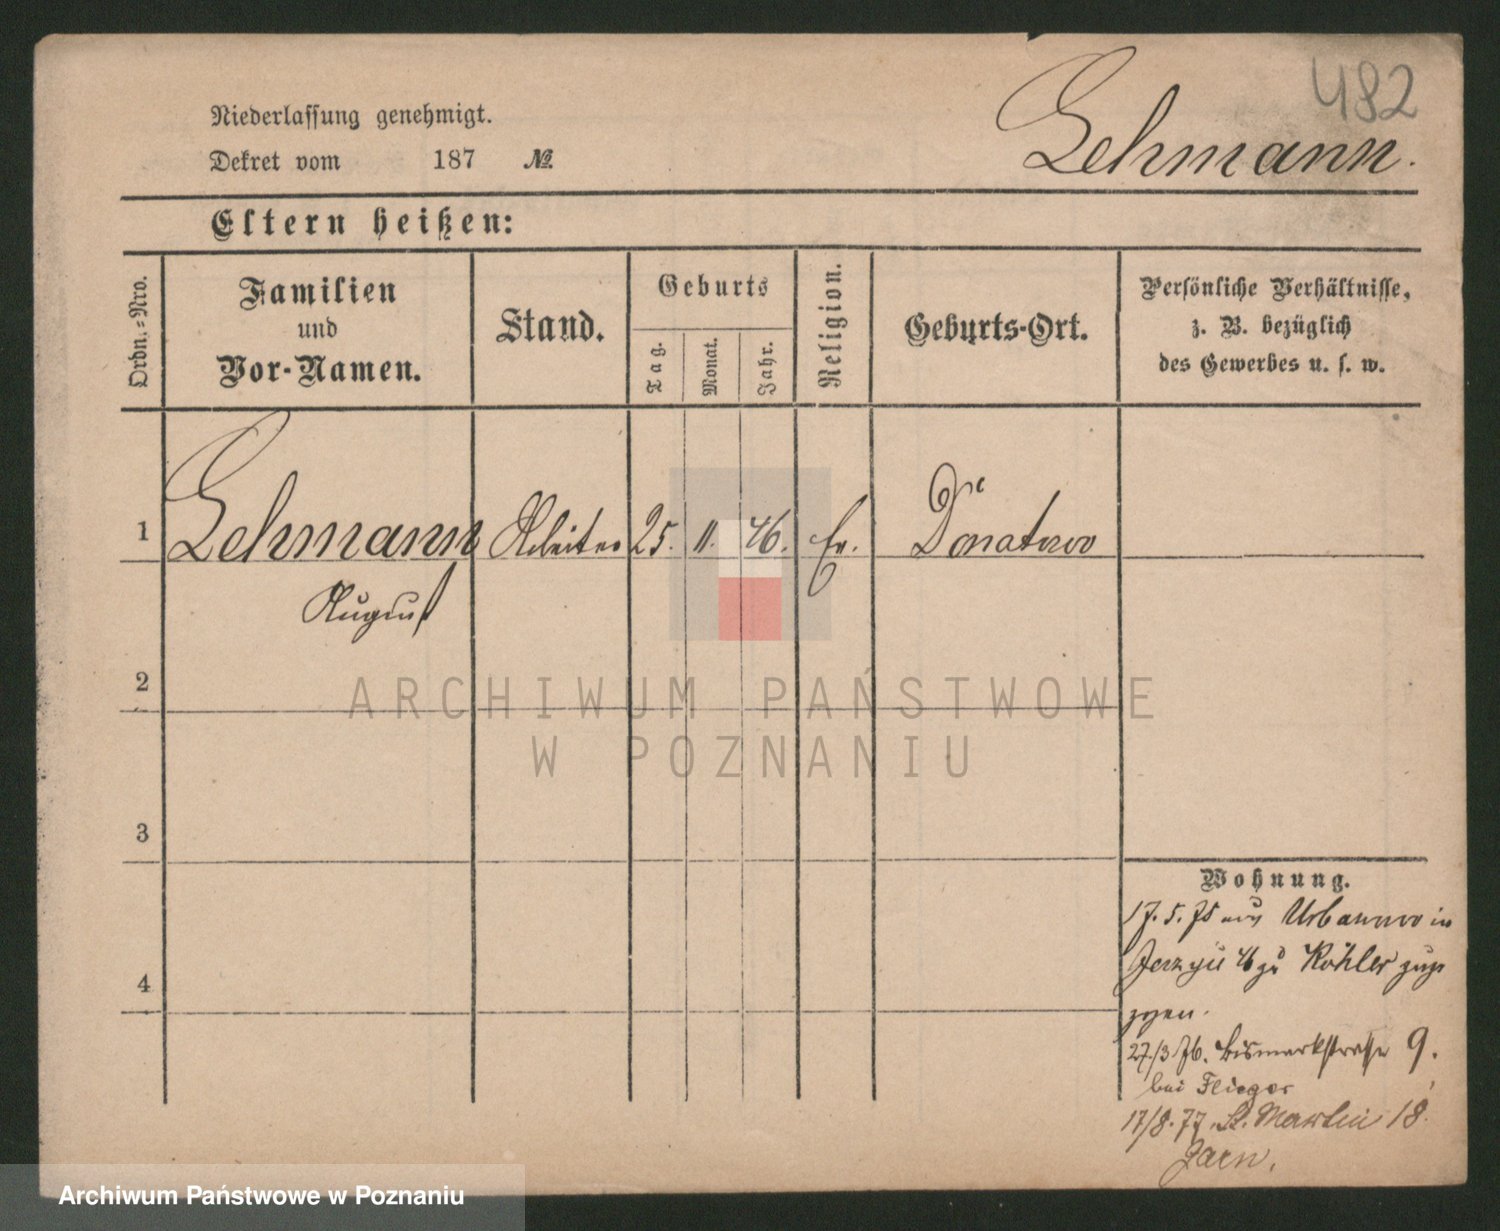 482
Lehmann.
Niederlassung genehmigt.
Dekret vom 187 №
Eltern heißen:
Ordn.=Nro.
Familien
und
Vor-Namen.
Stand.
Geburts
Tag.
Monat.
Jahr.
Religion.
Geburts-Ort.
Persönliche Verhältnisse,
z. B. bezüglich
des Gewerbes u. s. w.
1 Lehmann Arbeiter 25. 11. 46. Ev. Donatowo
August
2
3
4
Wohnung.
17. 5. 75 aus Urbanowo in
Jerzyce 46 zu Köhler zuge
zogen.
27/3 76. Bismarkstrasse 9.
bei Flieger
17/8. 77. St. Martin 18.
ARCHIWUM PAŃSTWOWE
W POZNANIU
Archiwum Państwowe w Poznaniu